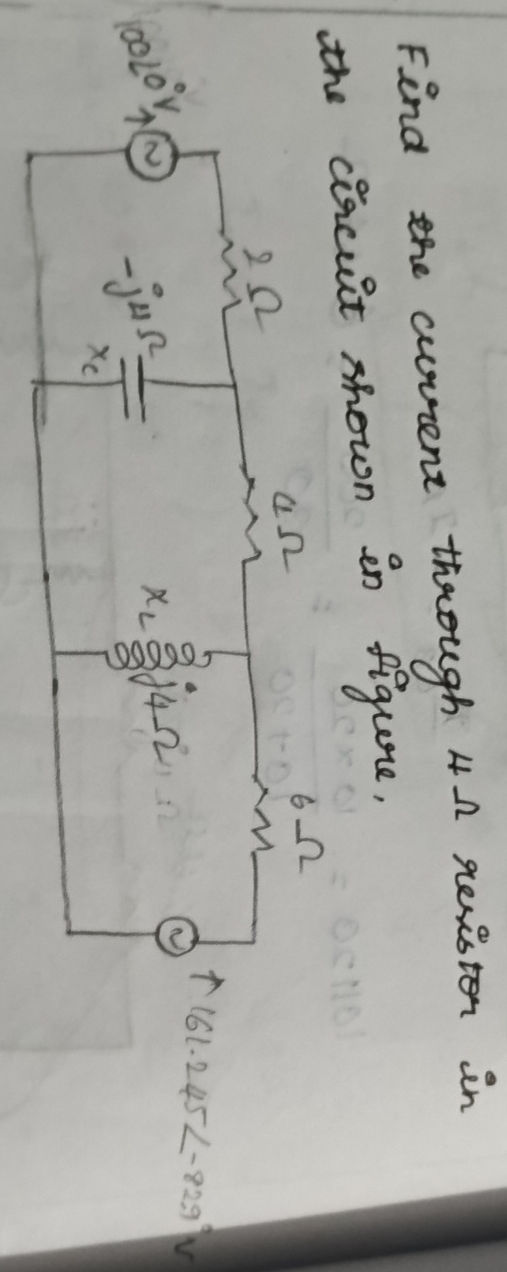 Find the current through 4Ω resistor in
the circuit shown in figure,
2Ω
4Ω
6Ω
100∠0°V
-j4Ω
Xc
XL
j4Ω
161.245∠-829°V